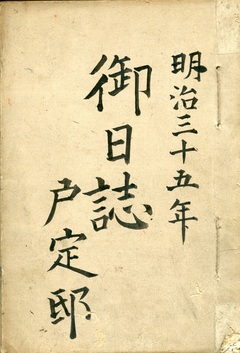 明治三十五年
御日誌
戸定邸